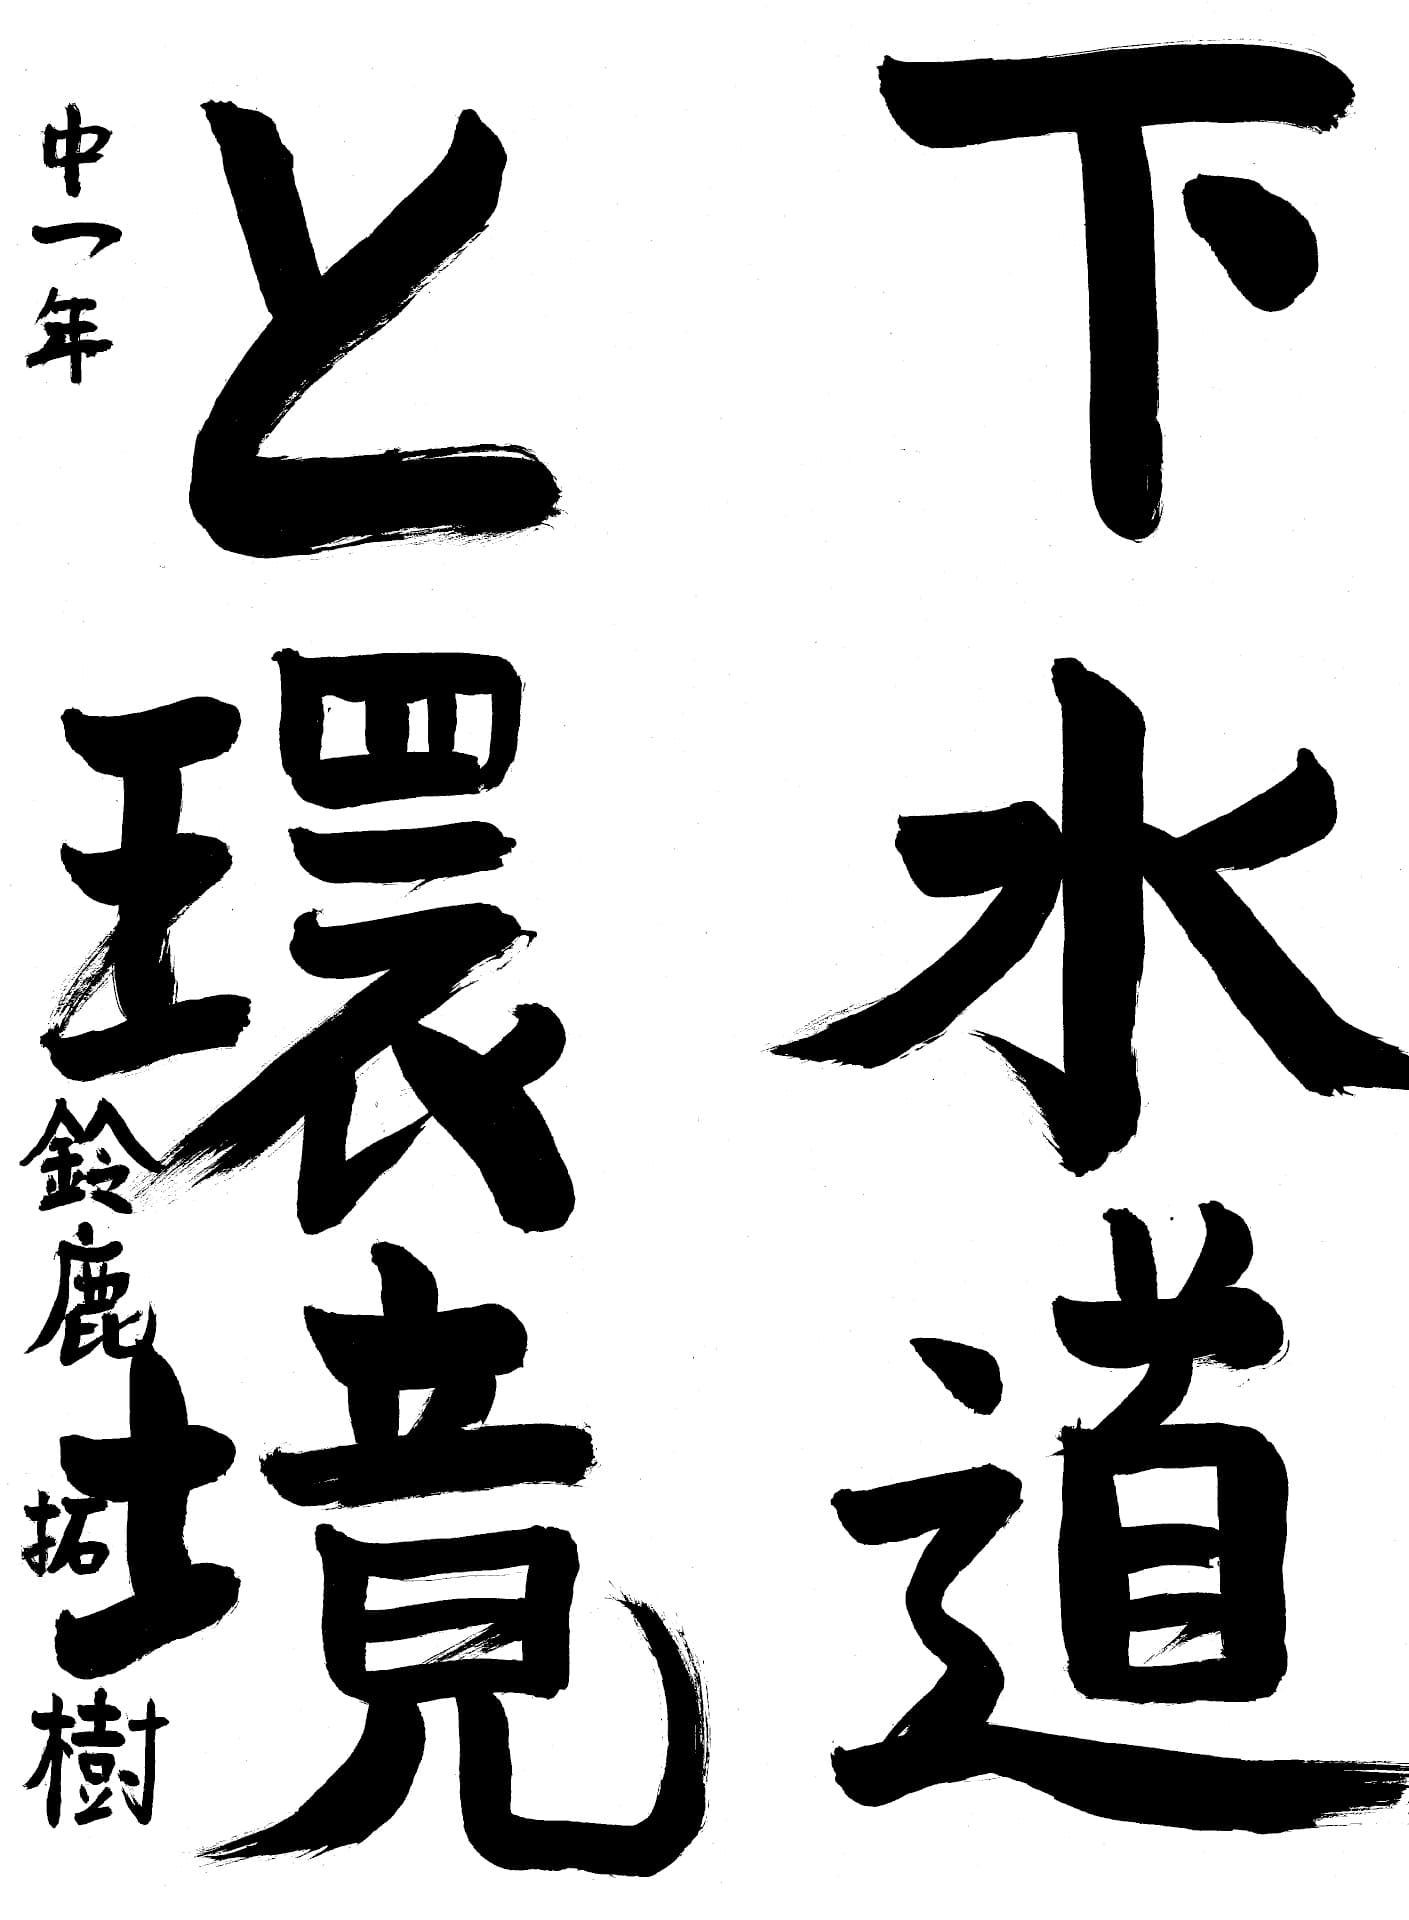 下水道
と環境
中一年 鈴鹿拓樹